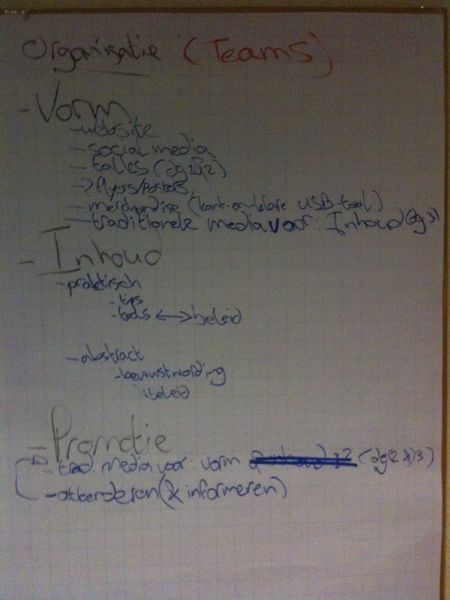 Organisatie (Teams)
- Vorm
- website
- social media
- talks (dg 1&2)
- ? flyers/posters
- merchandise (kant-en-klare USB-tool)
- traditionele media voor: Inhoud (dg 3)
- Inhoud
- praktisch
- tips
- tools <-> beleid
- abstract
- bewustwording
beleid
- Promotie
- trad media voor: vorm (dg 2 & 3)
- attenderen (& informeren)